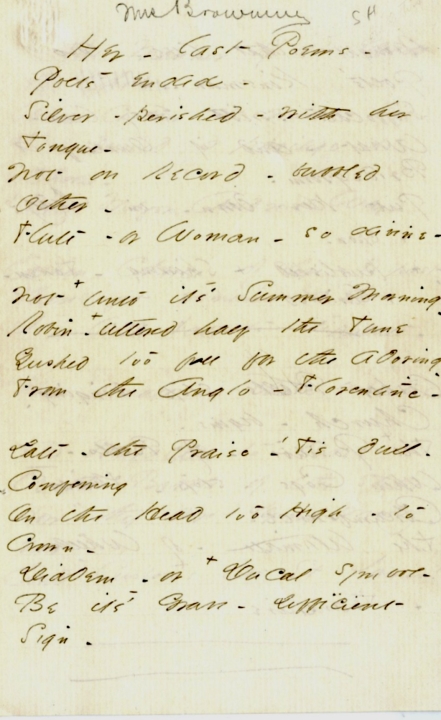 Mrs Browning SH
Her - last Poems -
Poets Ended -
Silver - perished - with her
Tongue -
Not on Record - bubbled
Other -
Flute - or Woman - so divine -
Not + unto it's Summer Morning -
Robin + uttered half the Tune
Gushed too full for the adoring
From the Anglo - Florentine -
Late - the Praise - 'Tis dull -
Conferring
On the Head too High - to
Crown -
Diadem - or + Ducal Symbol -
Be it's Grave - sufficient
Sign -